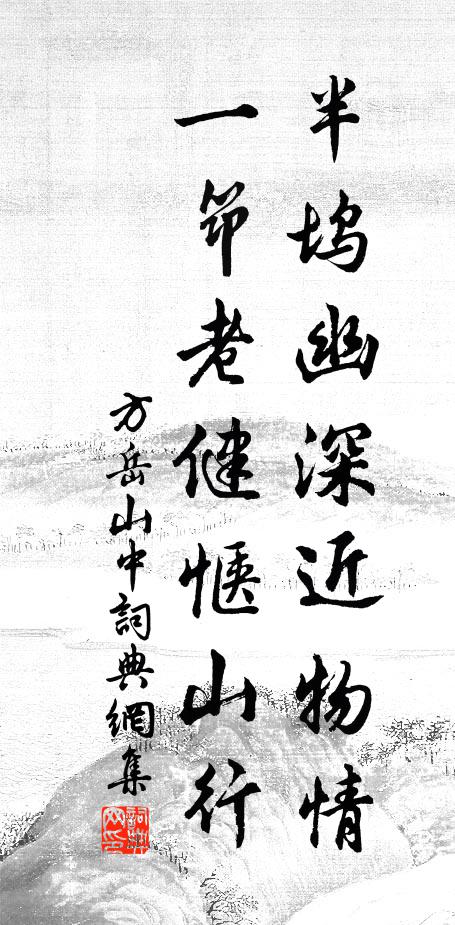 半坞幽深近物情
一笻老健惬山行
方岳山中詞典網集